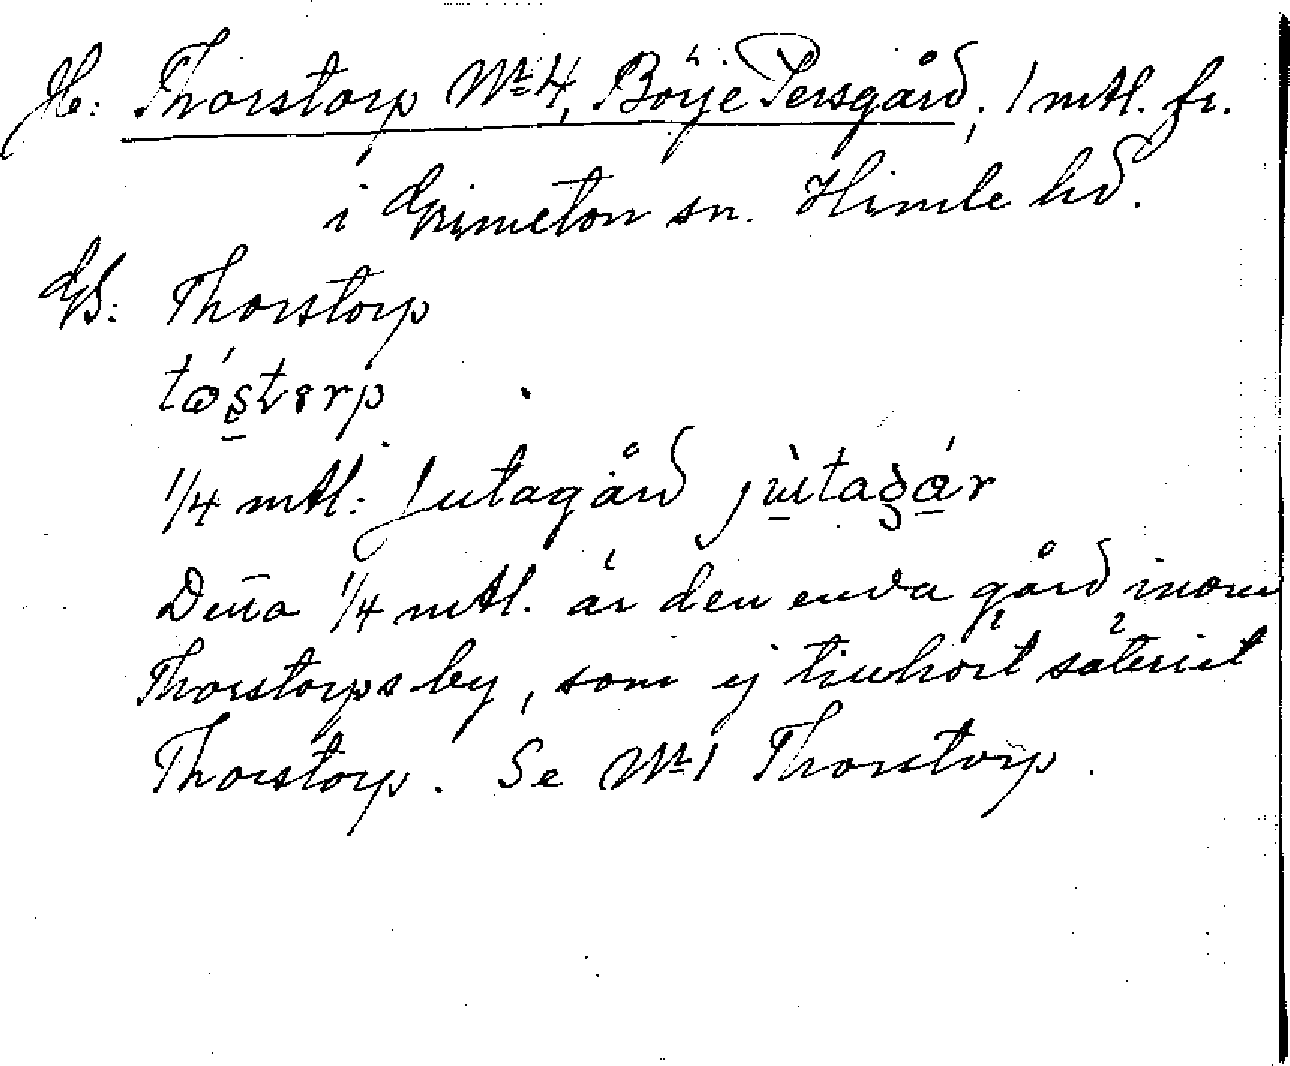 H: Thorstorp No 4, Börje Persgård, 1 mtl. fr.
i Grimeton sn. Himle hd.
Gb: Thorstorp
tåstorp
1/4 mtl: Jutagård jùtagár
Denna 1/4 mtl. är den enda gård inom
Thorstorps by, som ej tillhört säteriet
Thorstorp. Se No 1 Thorstorp.